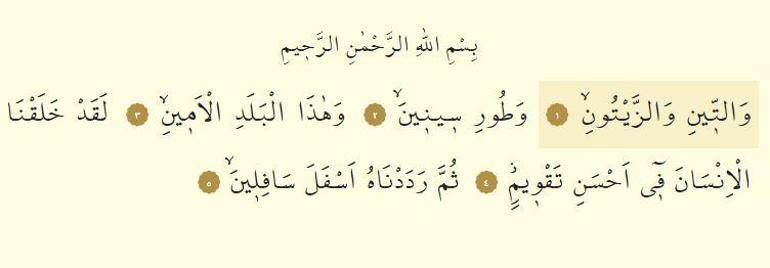 بِسْمِ اللّٰهِ الرَّحْمٰنِ الرَّح۪يمِ
وَالتّ۪ينِ وَالزَّيْتُونِۙ ﴿١﴾ وَطُورِ س۪ين۪ينَۙ ﴿٢﴾ وَهٰذَا الْبَلَدِ الْاَم۪ينِۙ ﴿٣﴾ لَقَدْ خَلَقْنَا
الْاِنْسَانَ ف۪ٓي اَحْسَنِ تَقْو۪يمٍۘ ﴿٤﴾ ثُمَّ رَدَدْنَاهُ اَسْفَلَ سَافِل۪ينَۙ ﴿٥﴾